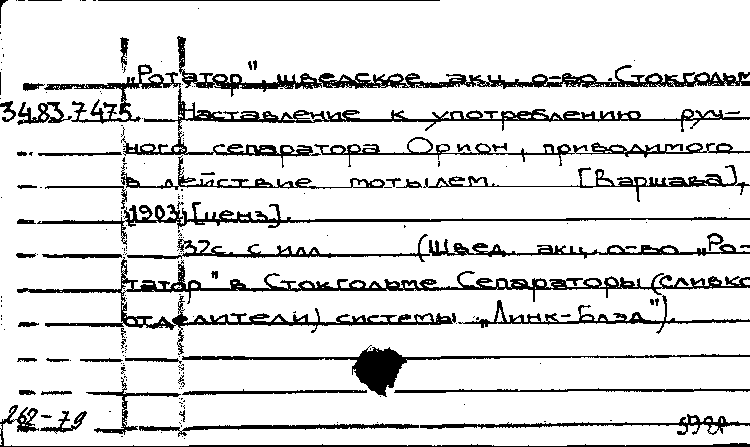 „Ротатор", шведское акц. о-во. Стокгольм
34.83.7475. Наставление к употреблению руч-
ного сепаратора Орион, приводимого
в действие мотылем. [Варшава],
1903 [ценз].
32с. с илл. (Швед. акц. о-во „Ро-
татор" в Стокгольме Сепараторы (сливко
отделители) системы „Линк-Блэд").
262-79